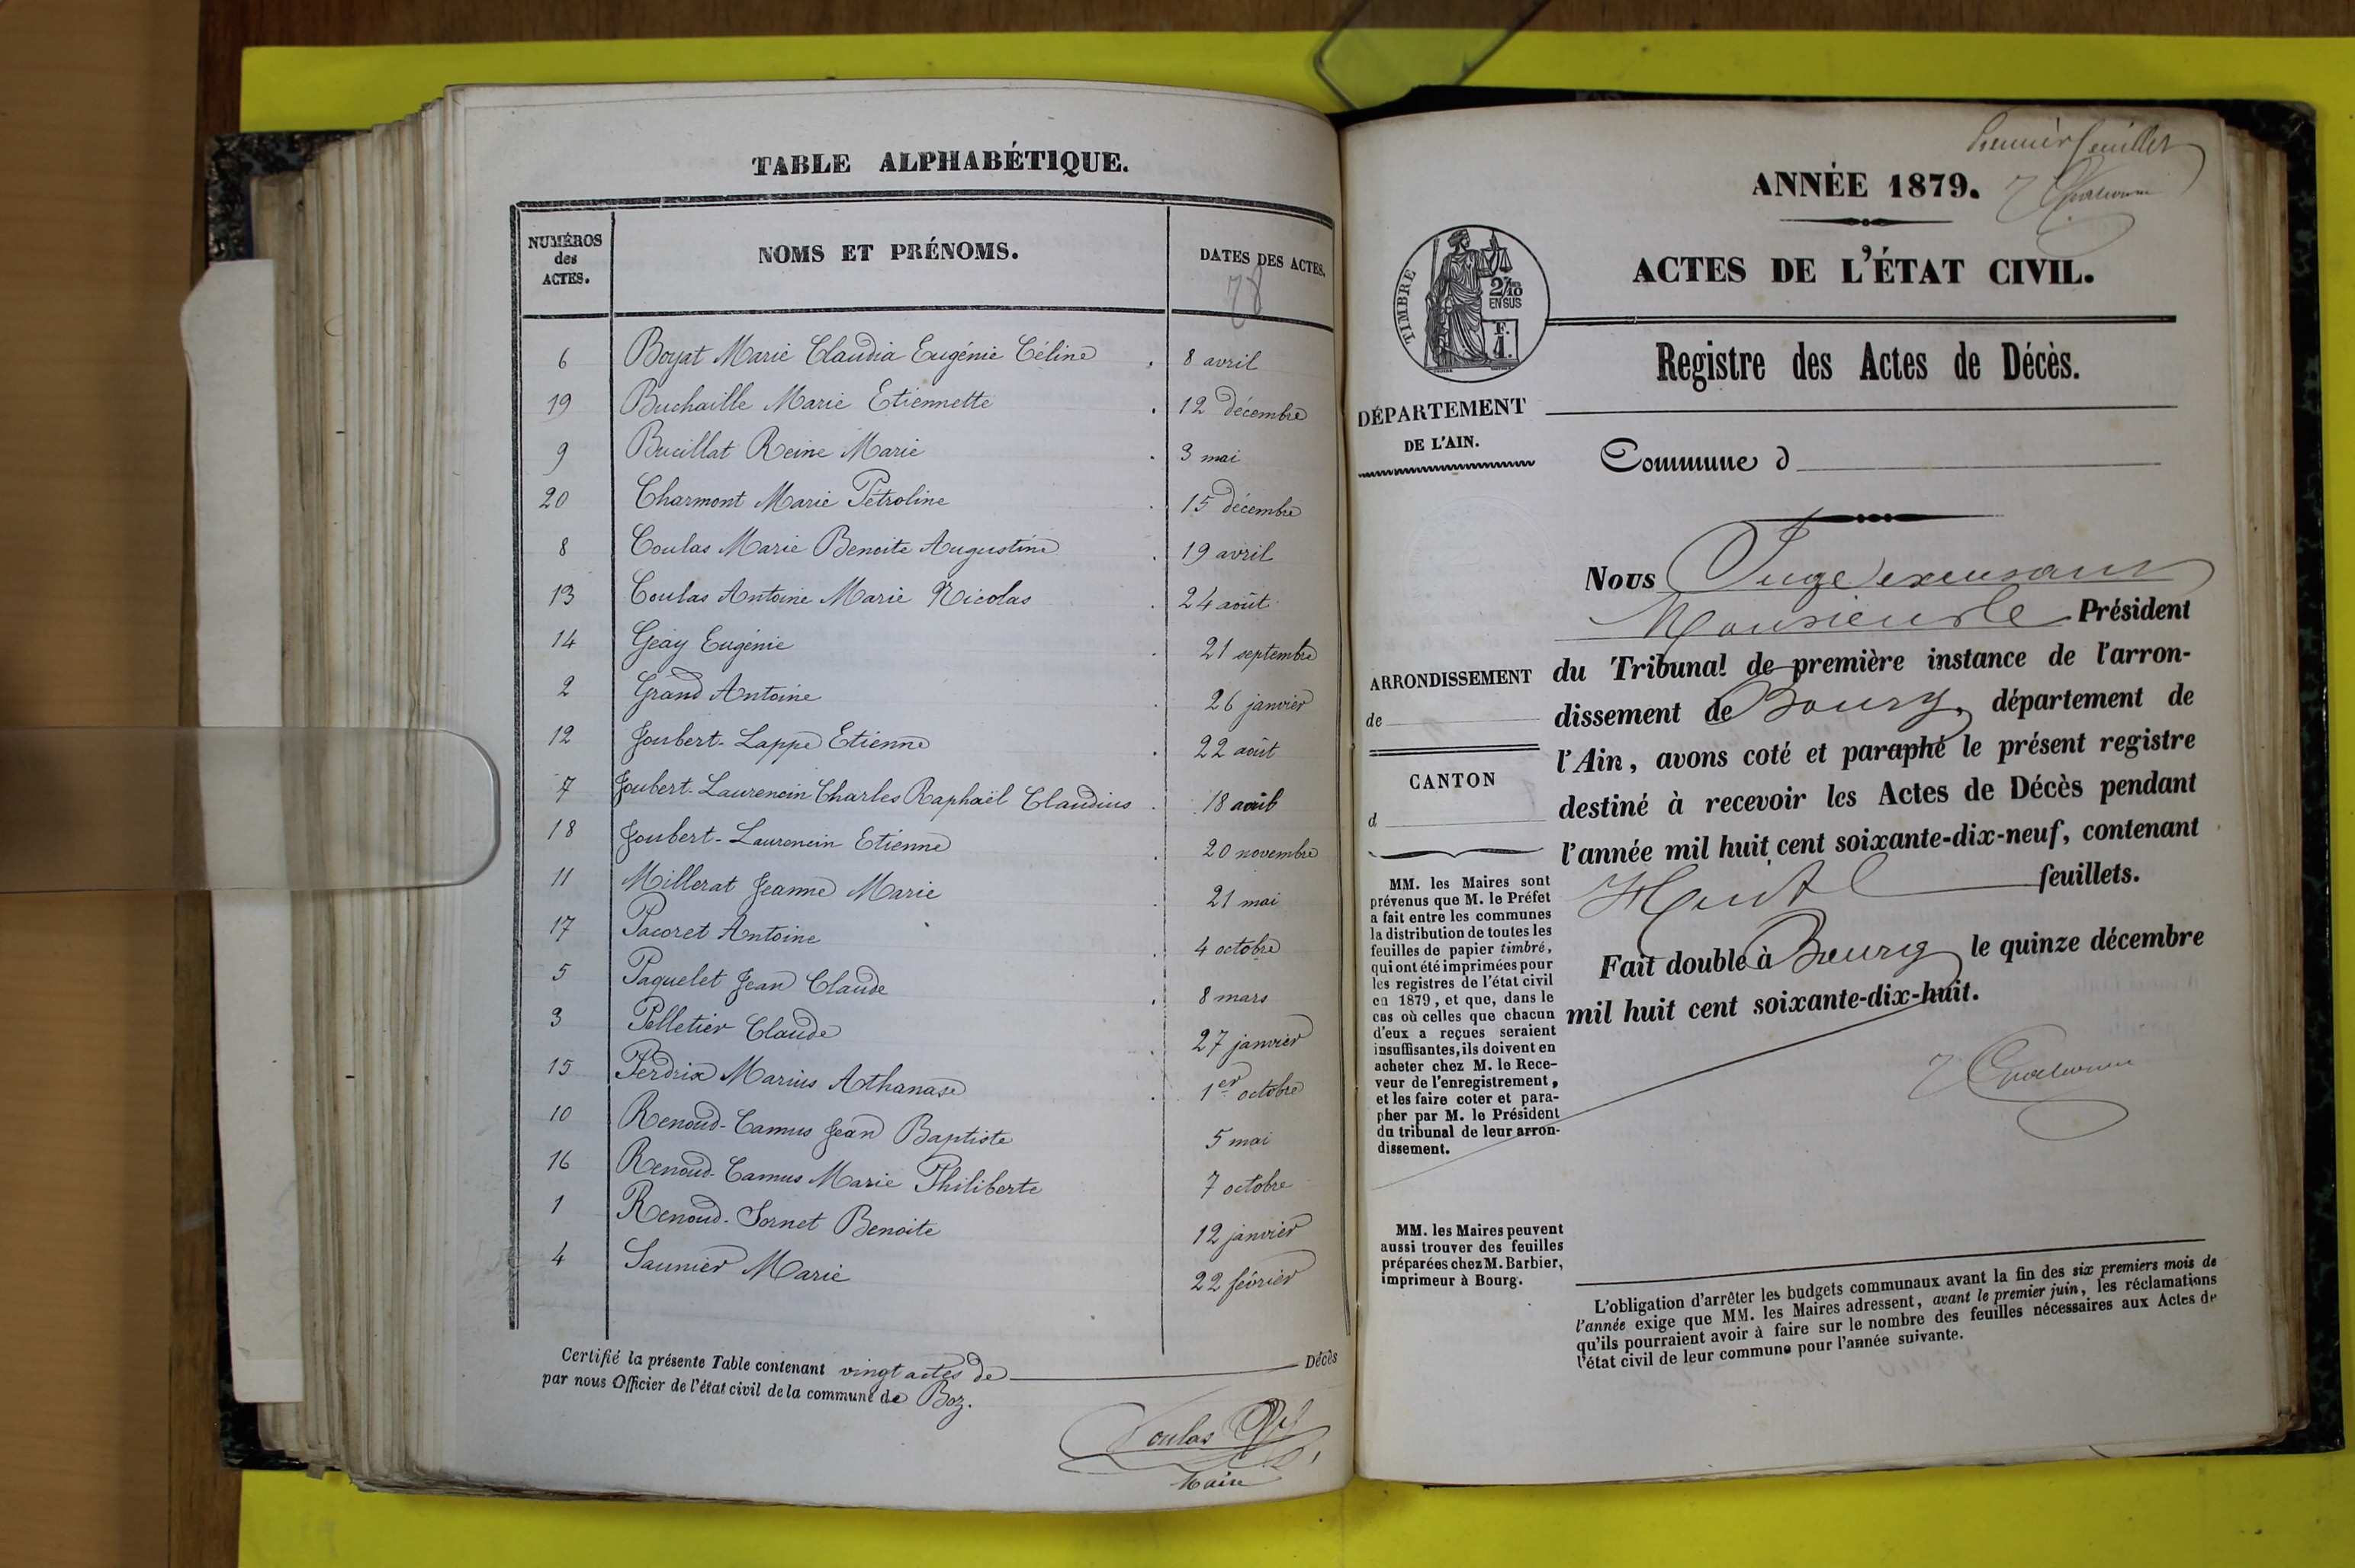 TABLE ALPHABÉTIQUE.
NUMÉROS des ACTES. NOMS ET PRÉNOMS. DATES DES ACTES.
78
6 Boyat Marie Claudia Eugénie Céline 8 avril
19 Buchaille Marie Etiennette 12 décembre
9 Buellat Reine Marie 3 mai
20 Charmont Marie Pétroline 15 décembre
8 Coulas Marie Benoite Augustine 19 avril
13 Coulas Antoine Marie Nicolas 24 août
14 Geay Eugénie 21 septembre
2 Grand Antoine 26 janvier
12 Joubert-Lappe Etienne 22 août
7 Joubert-Laurencin Charles Raphaël Claudius 18 avril
18 Joubert-Laurencin Etienne 20 novembre
11 Millerat Jeanne Marie 21 mai
17 Pacoret Antoine 4 octobre
5 Paquelet Jean Claude 8 mars
3 Pelletier Claude 27 janvier
15 Perdrix Marius Athanase 1er octobre
10 Renoud-Camus Jean Baptiste 5 mai
16 Renoud-Camus Marie Philiberte 7 octobre
1 Renoud-Sornet Benoite 12 janvier
4 Saunier Marie 22 février
Certifié la présente Table contenant vingt actes de Décès
par nous Officier de l'état civil de la commune de Boz.
Coulas
Maire
Premier feuillet
ANNÉE 1879.
ACTES DE L'ÉTAT CIVIL.
TIMBRE
2/10
EN SUS
F.
Registre des Actes de Décès.
DÉPARTEMENT
DE L'AIN.
Commune d
Nous Juge
Monsieur le Président
du Tribunal de première instance de l'arron-
dissement de Bourg, département de
l'Ain, avons coté et paraphé le présent registre
destiné à recevoir les Actes de Décès pendant
l'année mil huit cent soixante-dix-neuf, contenant
feuillets.
Fait double à Bourg le quinze décembre
mil huit cent soixante-dix-huit.
ARRONDISSEMENT
de
CANTON
d
MM. les Maires sont
prévenus que M. le Préfet
a fait entre les communes
la distribution de toutes les
feuilles de papier timbré,
qui ont été imprimées pour
les registres de l'état civil
en 1879, et que, dans le
cas où celles que chacun
d'eux a reçues seraient
insuffisantes, ils doivent en
acheter chez M. le Rece-
veur de l'enregistrement,
et les faire coter et para-
pher par M. le Président
du tribunal de leur arron-
dissement.
MM. les Maires peuvent
aussi trouver des feuilles
préparées chez M. Barbier,
imprimeur à Bourg.
L'obligation d'arrêter les budgets communaux avant la fin des six premiers mois de
l'année exige que MM. les Maires adressent, avant le premier juin, les réclamations
qu'ils pourraient avoir à faire sur le nombre des feuilles nécessaires aux Actes de
l'état civil de leur commune pour l'année suivante.